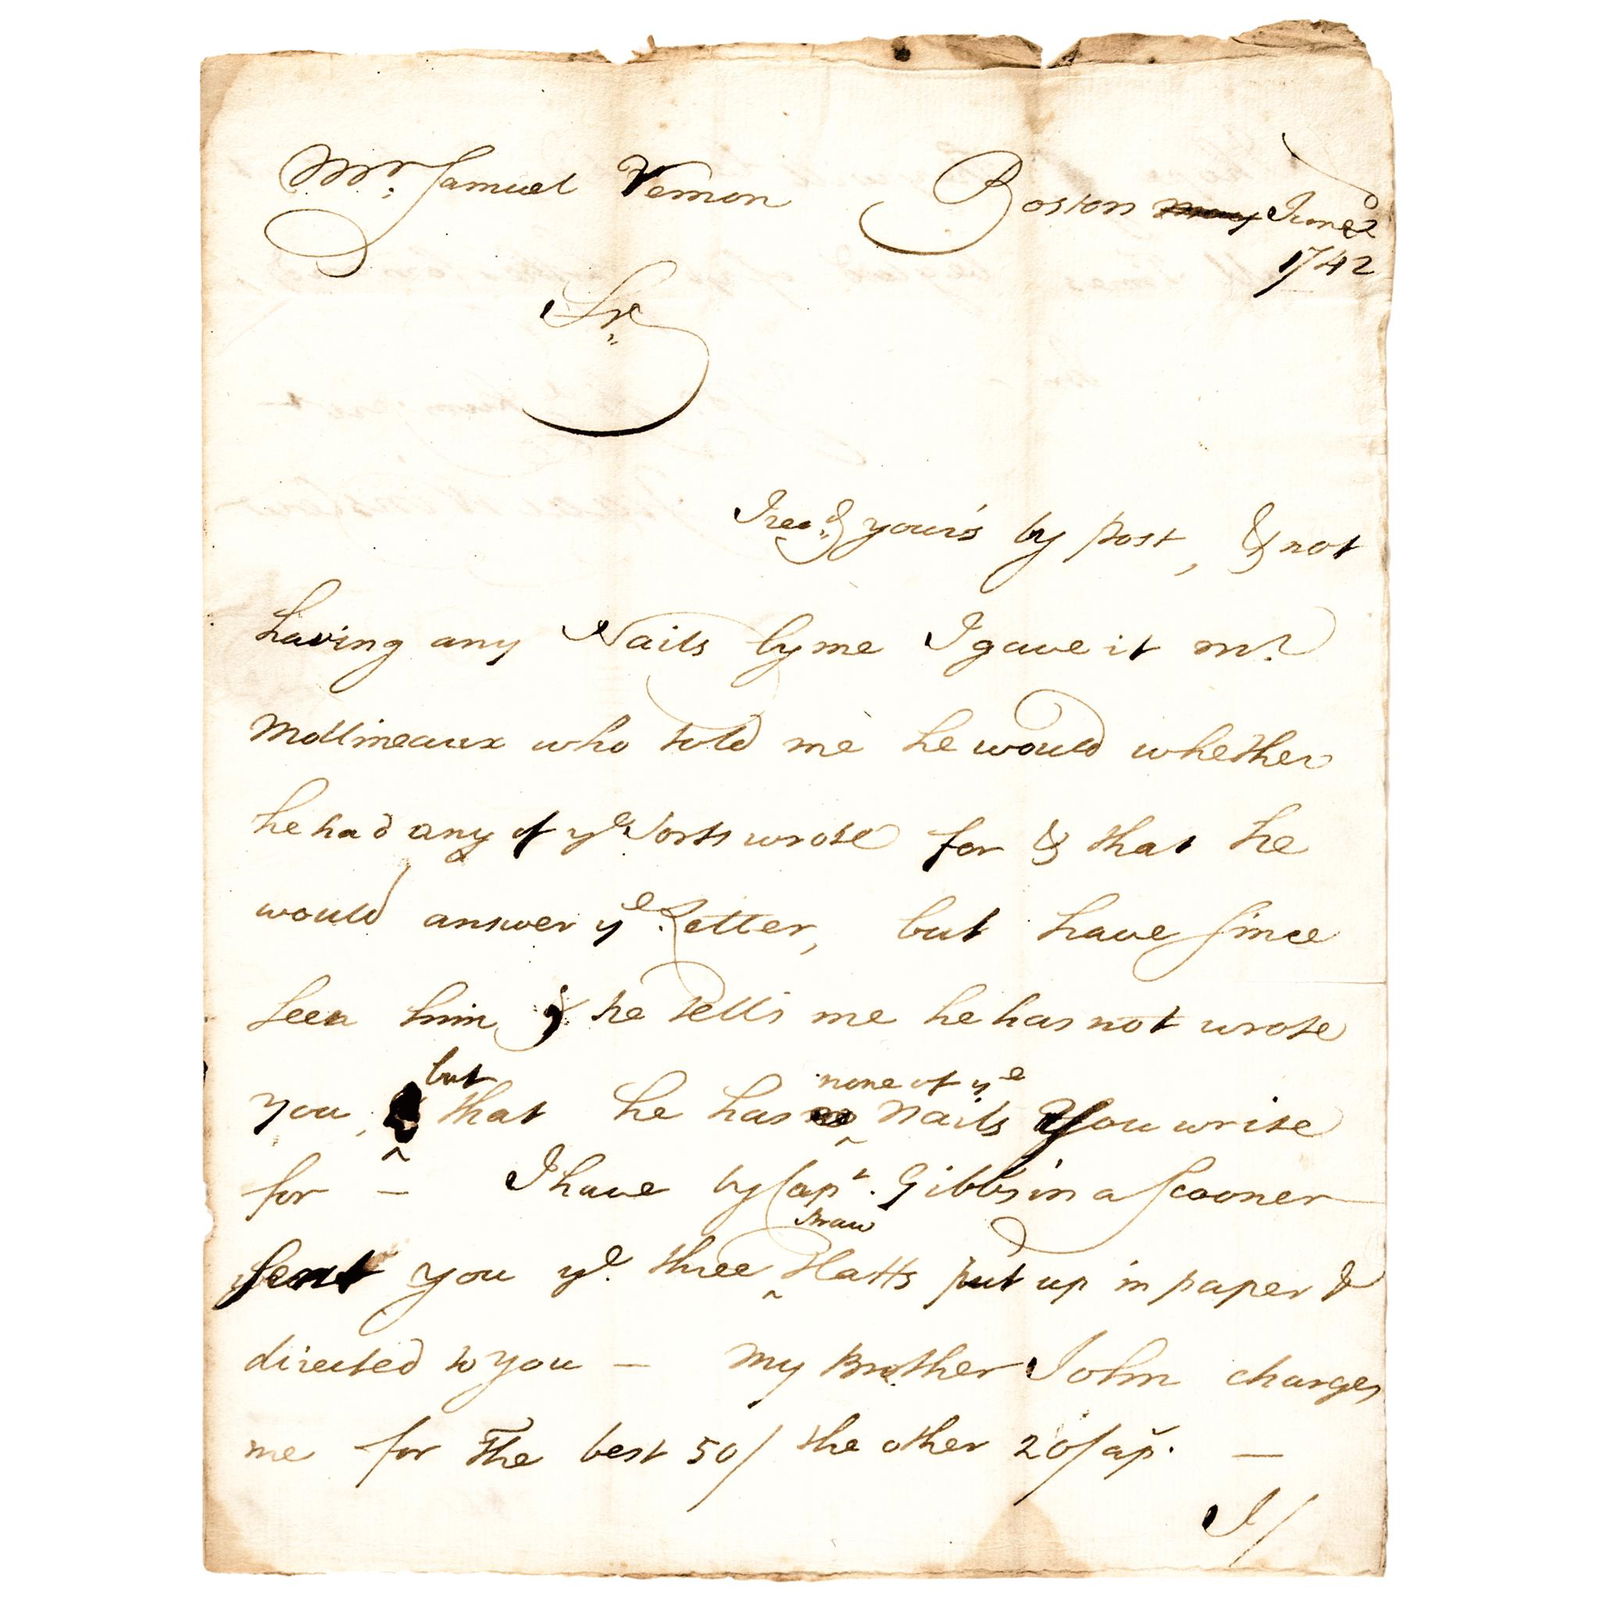 Mr. Samuel Vernon Boston May June 2d
1742
Sr.
I recd. your's by post, & not
having any Nails by me I gave it mr.
Mollineaux who told me he would whether
he had any of ye Sorts wrote for & that he
would answer ye Letter, but have since
seen him & he tells me he has not wrote
you, but that he has none of ye Nails You write
for — I have by Capt. Gibbs in a Scooner
sent you ye. three Straw Hatts put up in paper &
directed to you — My Brother John charges
me for The best 50/ the other 20/ ap. —
I/